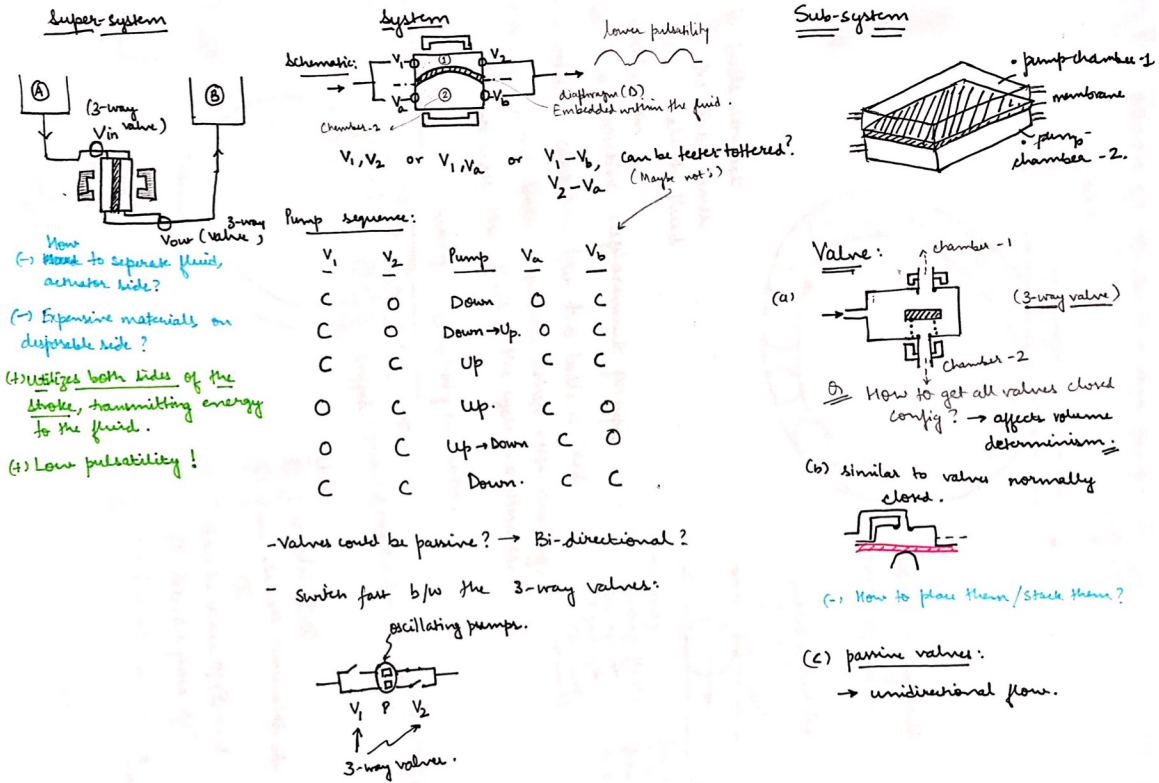 Super-system
A
B
(3-way
valve)
Vin
3-way
Vout (valve)
How
(-) to seperate fluid,
actuator side?
(-) Expensive materials on
disposable side?
(+) Utilizes both sides of the
stroke, transmitting energy
to the fluid.
(+) Low pulsatility!
System
Schematic:
V1
1
V2
Va
2
Vb
lower pulsatility
diaphragm (D)
Embedded within the fluid.
Chamber-2
V1, V2 or V1, Va or V1-Vb, can be teeter-tottered?
V2-Va (Maybe not!)
Pump sequence:
V1 V2 Pump Va Vb
C O Down O C
C O Down→Up. O C
C C Up C C
O C Up. C O
O C Up→Down C O
C C Down. C C
- Valves could be passive? → Bi-directional?
- Switch fast b/w the 3-way valves:
oscillating pumps.
V1 P V2
3-way valves.
Sub-system
• pump-chamber-1
membrane
• pump-
chamber-2.
Valve:
chamber-1
(a)
(3-way valve)
Chamber-2
Q. How to get all valves closed
config? → affects volume
determinism.
(b) similar to valves normally
closed.
(-) How to place them/stack them?
(c) passive valves:
→ unidirectional flow.